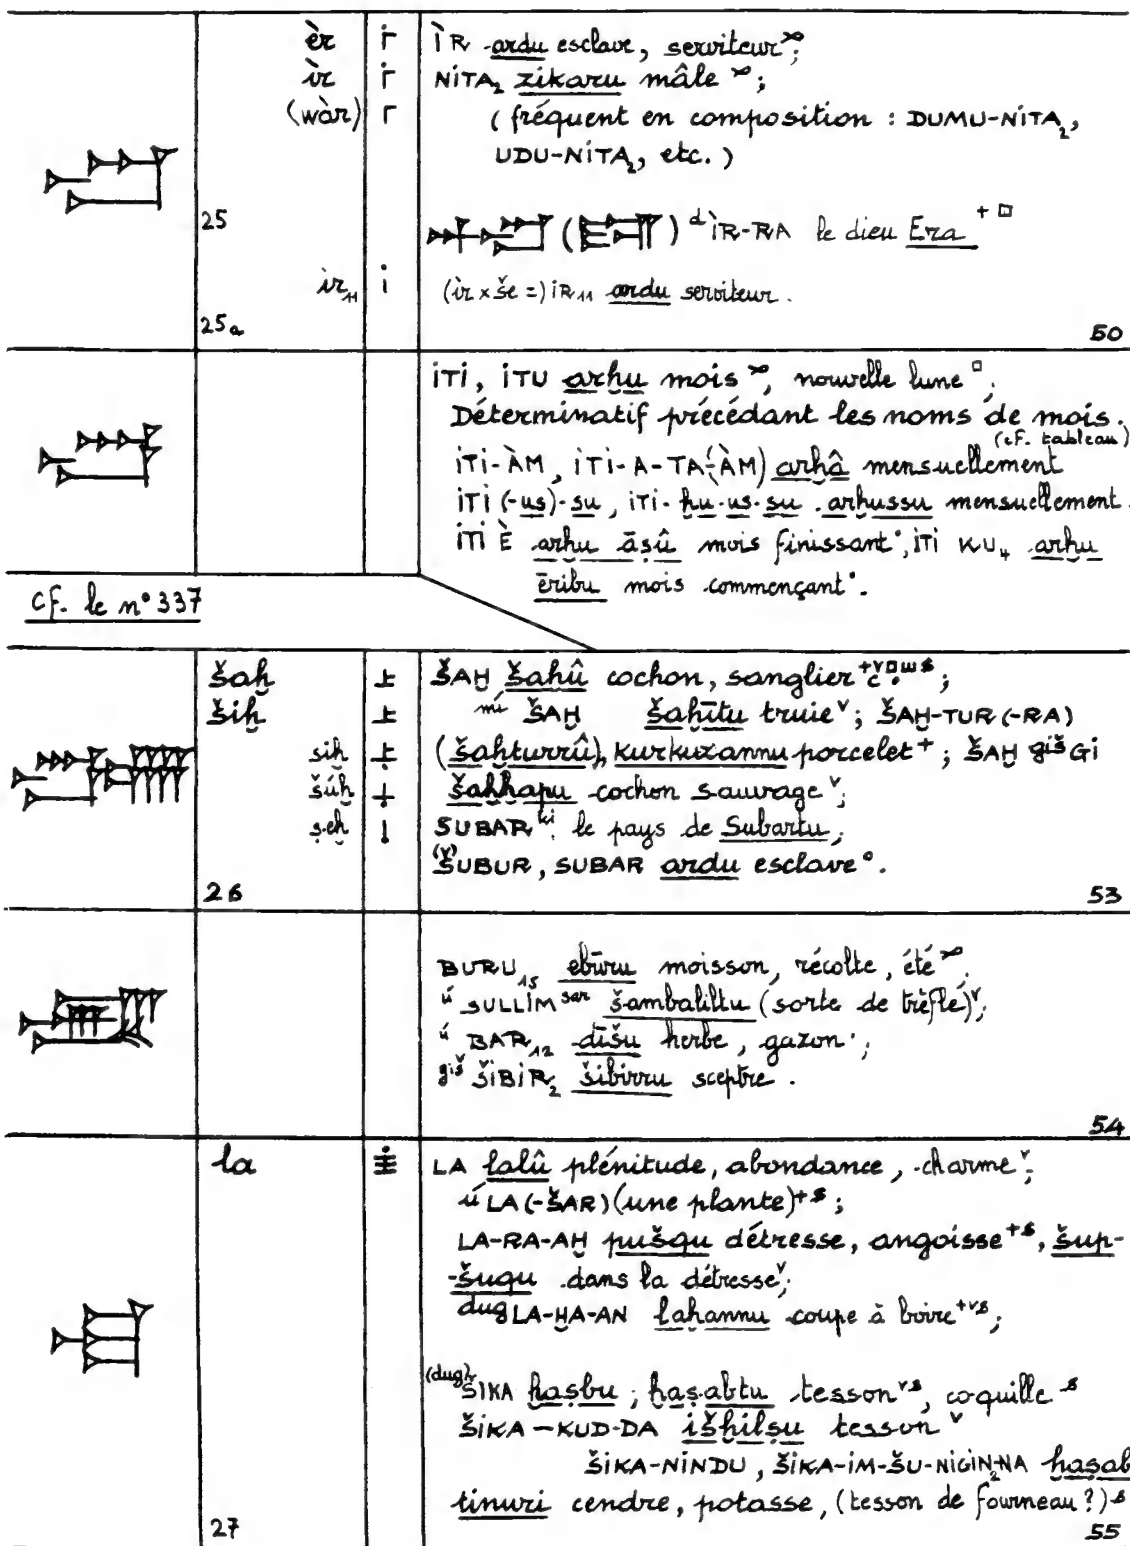 èr ÌR ardu esclave, serviteur;
ìr NITA₂ zikaru mâle;
(wàr) (fréquent en composition : DUMU-NITA₂,
UDU-NITA₂, etc.)
25 ᵈÌR-RA le dieu Erra
ìr₁₁ (ìr x še =) IR₁₁ ardu serviteur.
25a 50
ITI, ITU arḫu mois, nouvelle lune;
Déterminatif précédant les noms de mois.
(cf. tableau)
ITI-ÀM, ITI-A-TA(-ÀM) arḫâ mensuellement
ITI(-us)-su, ITI-ḫu-us-su arḫussu mensuellement.
ITI È arḫu āṣû mois finissant°, ITI KU₄ arḫu
ēribu mois commençant°.
cf. le n° 337
šaḫ ŠAḪ šaḫû cochon, sanglier;
šiḫ mí ŠAḪ šaḫītu truie ᵛ; ŠAḪ-TUR(-RA)
siḫ (šaḫturrû), kurkuzannu porcelet⁺; ŠAḪ ᵍⁱˢ̌GI
šúḫ šaḫḫapu cochon sauvage ᵛ;
ṣeḫ SUBAR ᵏⁱ le pays de Subartu;
ŠUBUR, SUBAR ardu esclave°.
26 53
BURU₁₅ ebūru moisson, récolte, été
ú SULLIM ˢᵃʳ šambaliltu (sorte de trèfle)ᵛ;
ú BAR₁₂ dīšu herbe, gazon;
ᵍⁱˢ̌ ŠIBIR₂ šibirru sceptre.
54
la LA lalû plénitude, abondance, charme ᵛ;
ú LA(-ŠAR) (une plante)⁺ˢ;
LA-RA-AḪ pušqu détresse, angoisse⁺ˢ, šup-
-šuqu dans la détresse ᵛ;
dug LA-ḪA-AN laḫannu coupe à boire⁺ᵛˢ;
(dug) ŠIKA ḫaṣbu; ḫaṣabtu tesson ᵛˢ, coquille ˢ
ŠIKA-KUD-DA išḫilṣu tesson ᵛ
ŠIKA-NINDU, ŠIKA-IM-ŠU-NIGIN₂-NA ḫaṣab
tinuri cendre, potasse, (tesson de fourneau?) ˢ
27 55